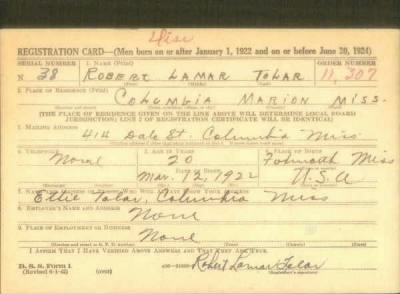 REGISTRATION CARD—(Men born on or after January 1, 1922 and on or before June 30, 1924)
SERIAL NUMBER 1. NAME (Print) ORDER NUMBER
N 38 ROBERT LAMAR TOLAR 11,307
2. PLACE OF RESIDENCE (Print)
COLUMBIA MARION MISS.
[THE PLACE OF RESIDENCE GIVEN ON THE LINE ABOVE WILL DETERMINE LOCAL BOARD
JURISDICTION; LINE 2 OF REGISTRATION CERTIFICATE WILL BE IDENTICAL]
3. MAILING ADDRESS
414 Dale St. Columbia Miss
4. TELEPHONE 5. AGE IN YEARS 6. PLACE OF BIRTH
None 20 Miss
DATE OF BIRTH
Mar. 12, 1922 U.S.A
7. NAME AND ADDRESS OF PERSON WHO WILL ALWAYS KNOW YOUR ADDRESS
Ellie Tolar, Columbia Miss
8. EMPLOYER'S NAME AND ADDRESS
None
9. PLACE OF EMPLOYMENT OR BUSINESS
None
I AFFIRM THAT I HAVE VERIFIED ABOVE ANSWERS AND THAT THEY ARE TRUE.
D. S. S. Form 1
(Revised 6-1-42) (over)
Robert Lamar Tolar